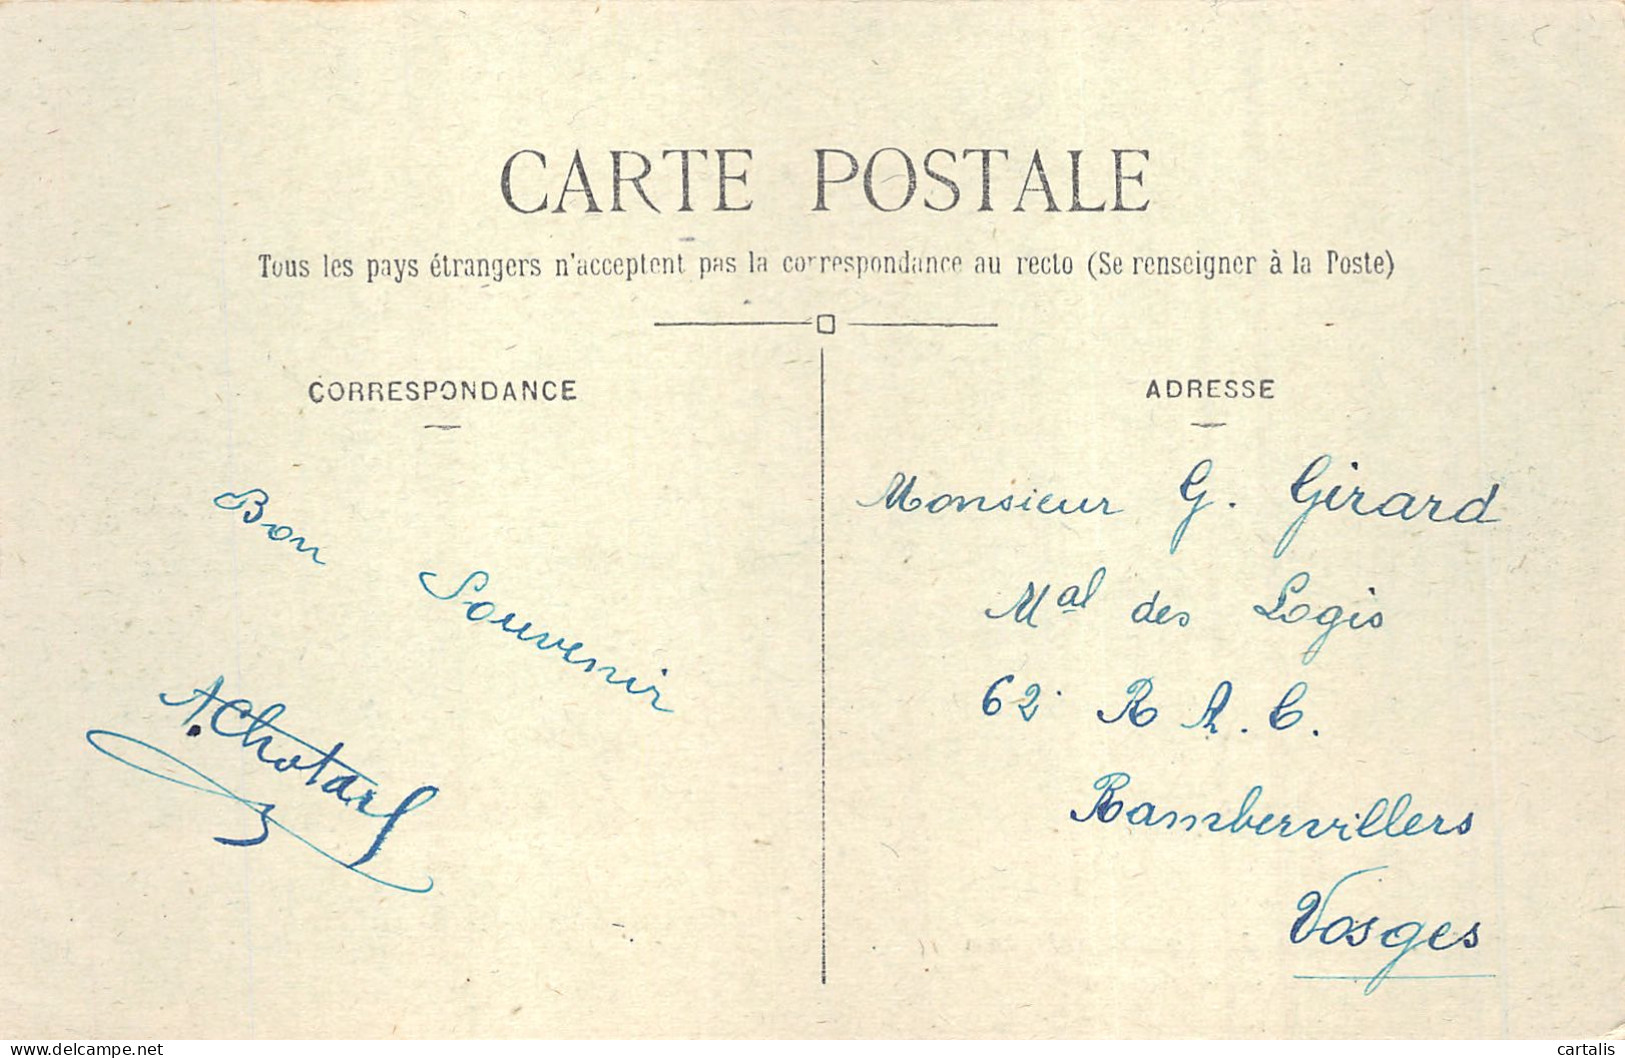 CARTE POSTALE
Tous les pays étrangers n'acceptent pas la correspondance au recto (Se renseigner à la Poste)
CORRESPONDANCE
Bon Souvenir
A. Chotard
ADRESSE
Monsieur G. Girard
Mal des Logis
62 R A. C.
Rambervillers
Vosges
delcampe.net
cartalis